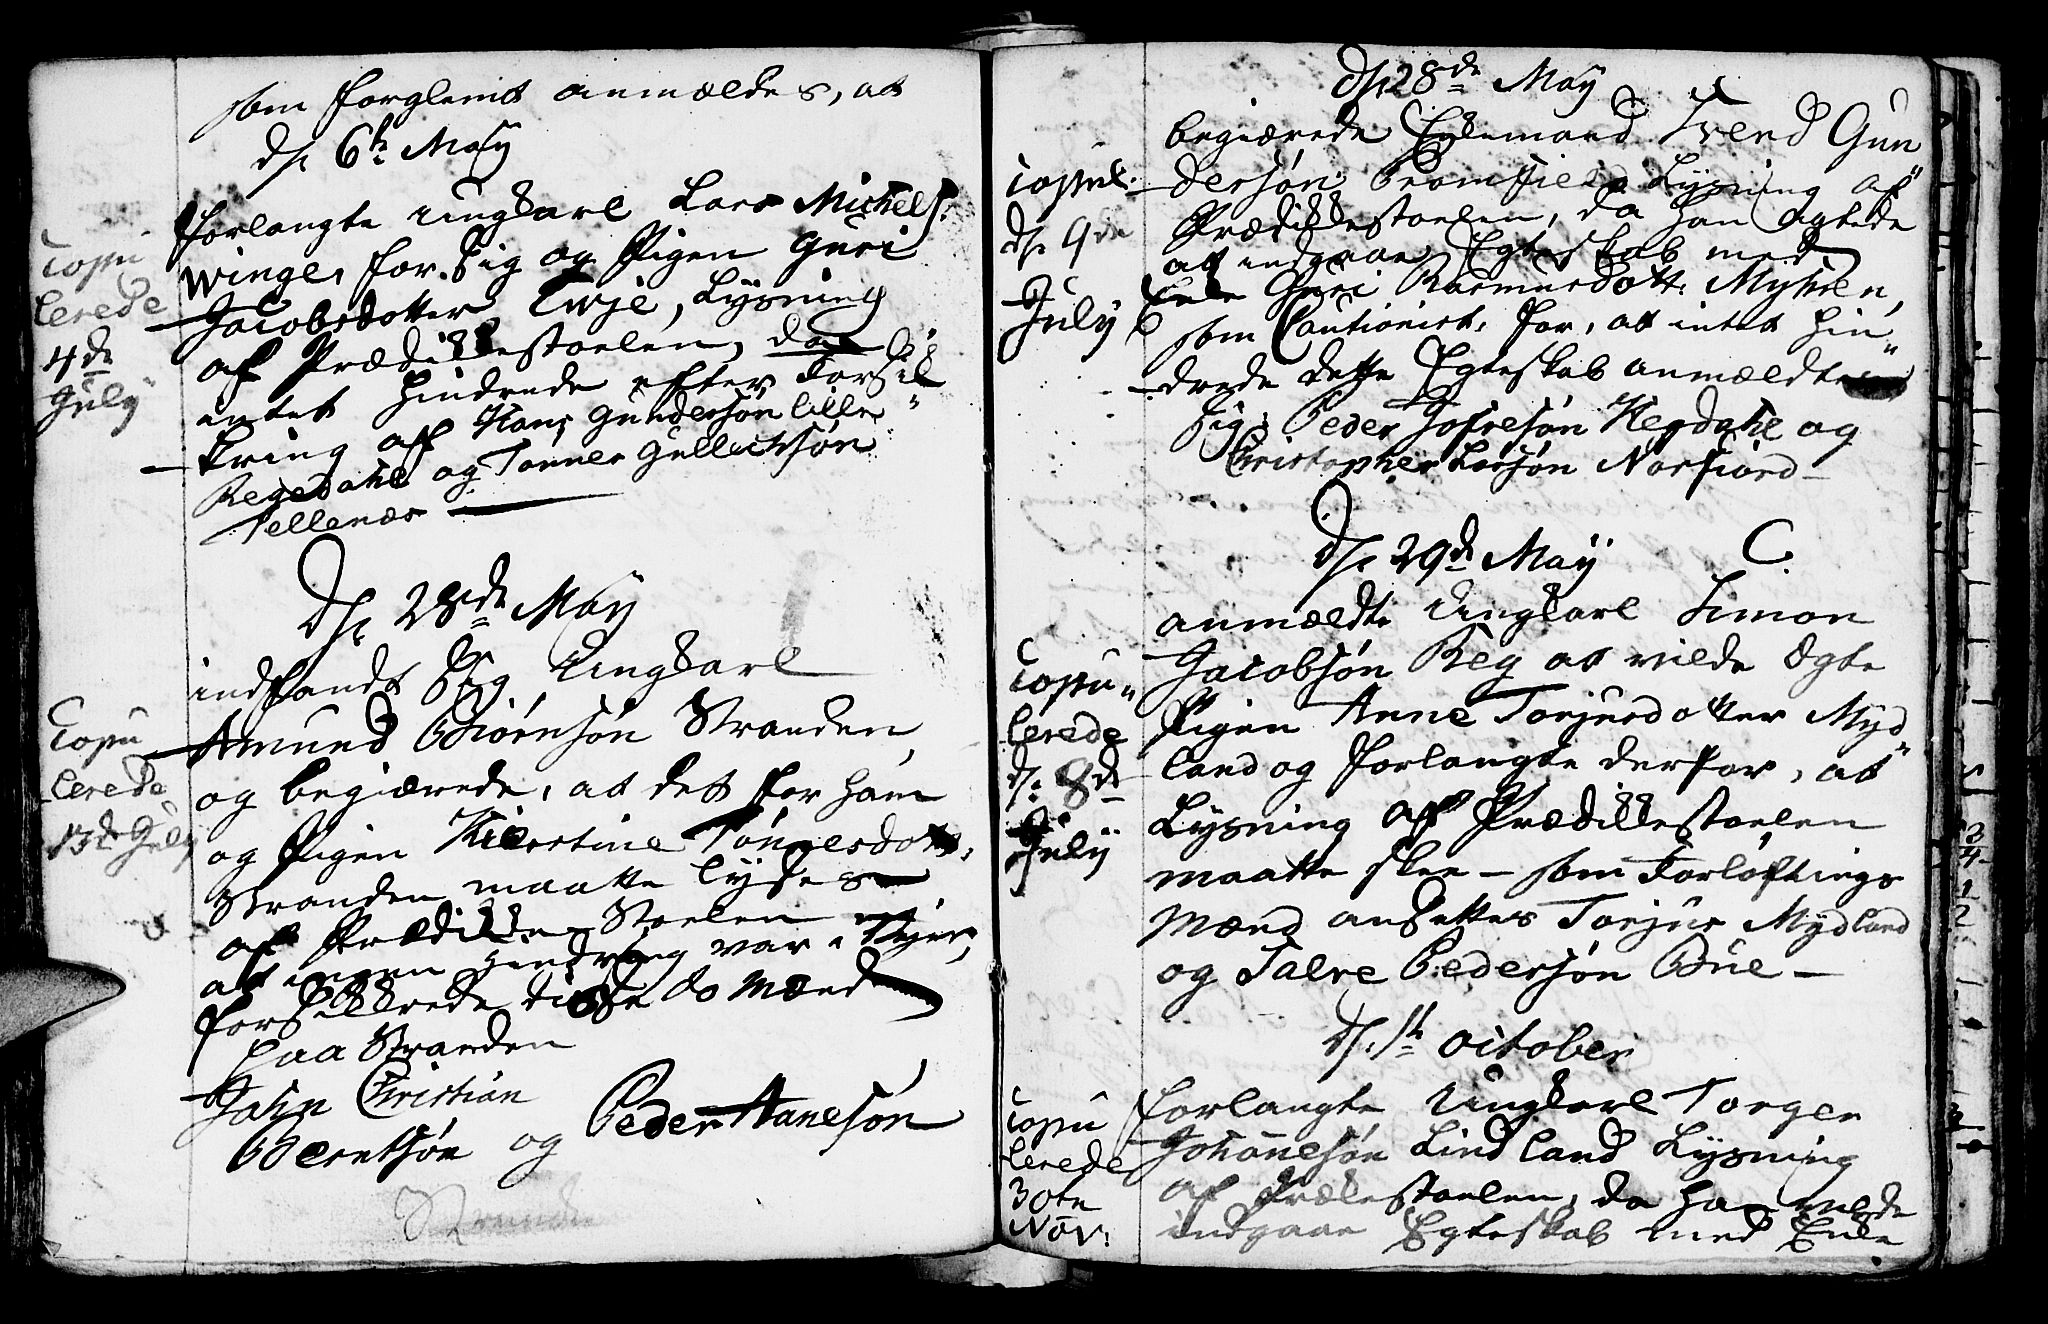 som forglemt anmældes, at
d. 6te May
Copu
lerede
4de
July
forlangte Ungkarl Lars Michels:
Winge, for Sig og Pigen Guri
Jacobsdotter Ewje, Lysning
af Prædikkestoelen, da
intet hindrede efter Forsik„
kring af Hans Gundersøn lille
Regedahl og Tønnes Gullichsøn
Tellenæs
D. 28de May
Copu
lerede
13de July
indfandt Sig Ungkarl
Amund Biørnsøn Stranden
og begiærede, at det for ham
og Pigen Kierstine Tønnesdott:
Stranden maatte lyses
af Prædikke-Stoelen
at ingen Hindring var i Vejen,
forsikkrede disse to Mænd
paa Stranden
John Christian
Berntsøn og Peder Hanesøn
Stranden
d. 28de May
Copul:
d. 9de
July
begiærede Enkemand Trend Gun„
dersøn Lysning af
Prædikkestoelen, da han agtede
at indgaae Egteskab med
Enke Guri Rasmusdott: Myhren,
som Cautionist, for, at intet hin„
drede dette Egteskab anmældte
sig: Peder Jofresøn Hegdahl og
Christopher Larsøn Norfiord
D. 29de May C.
anmældte Ungkarl Simon
Copu„
lerede
d. 8de
July
Jacobsøn Reg at vilde Ægte
Pigen Anne Torjusdotter Myd„
land og forlangte derfor, at
Lysning af Prædikkestoelen
maatte skee – som Forløftings
Mænd ansettes Torjus Mydland
og Talve Pedersøn Bue –
d. 1te october
Copu
lerede
30te
Nov:
forlangte Ungkarl Torger
Johannesøn Lindland Lysning
af Prækestoelen, da han vilde
indgaae Egteskab med Enke